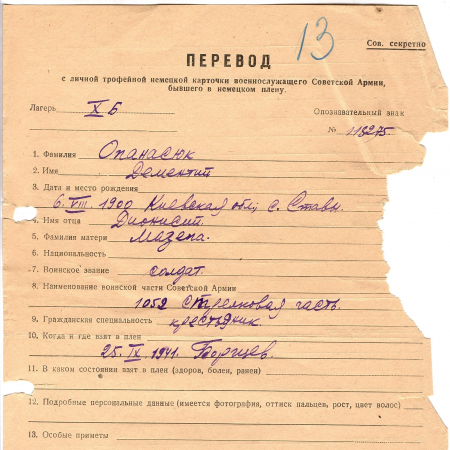 13
Сов. секретно
ПЕРЕВОД
с личной трофейной немецкой карточки военнослужащего Советской Армии,
бывшего в немецком плену.
Лагерь X Б Опознавательный знак
№ 118275
1. Фамилия Опанасюк
2. Имя Дементий
3. Дата и место рождения
6. VIII. 1900 Киевская обл, с. Ставн.
4. Имя отца Дионисий.
5. Фамилия матери Мазепа.
6. Национальность
7. Воинское звание солдат.
8. Наименование воинской части Советской Армии
1052 стрелковая часть.
9. Гражданская специальность крестьяник.
10. Когда и где взят в плен
25. IX. 1941. Борщев.
11. В каком состоянии взят в плен (здоров, болен, ранен)
12. Подробные персональные данные (имеется фотография, оттиск пальцев, рост, цвет волос)
13. Особые приметы